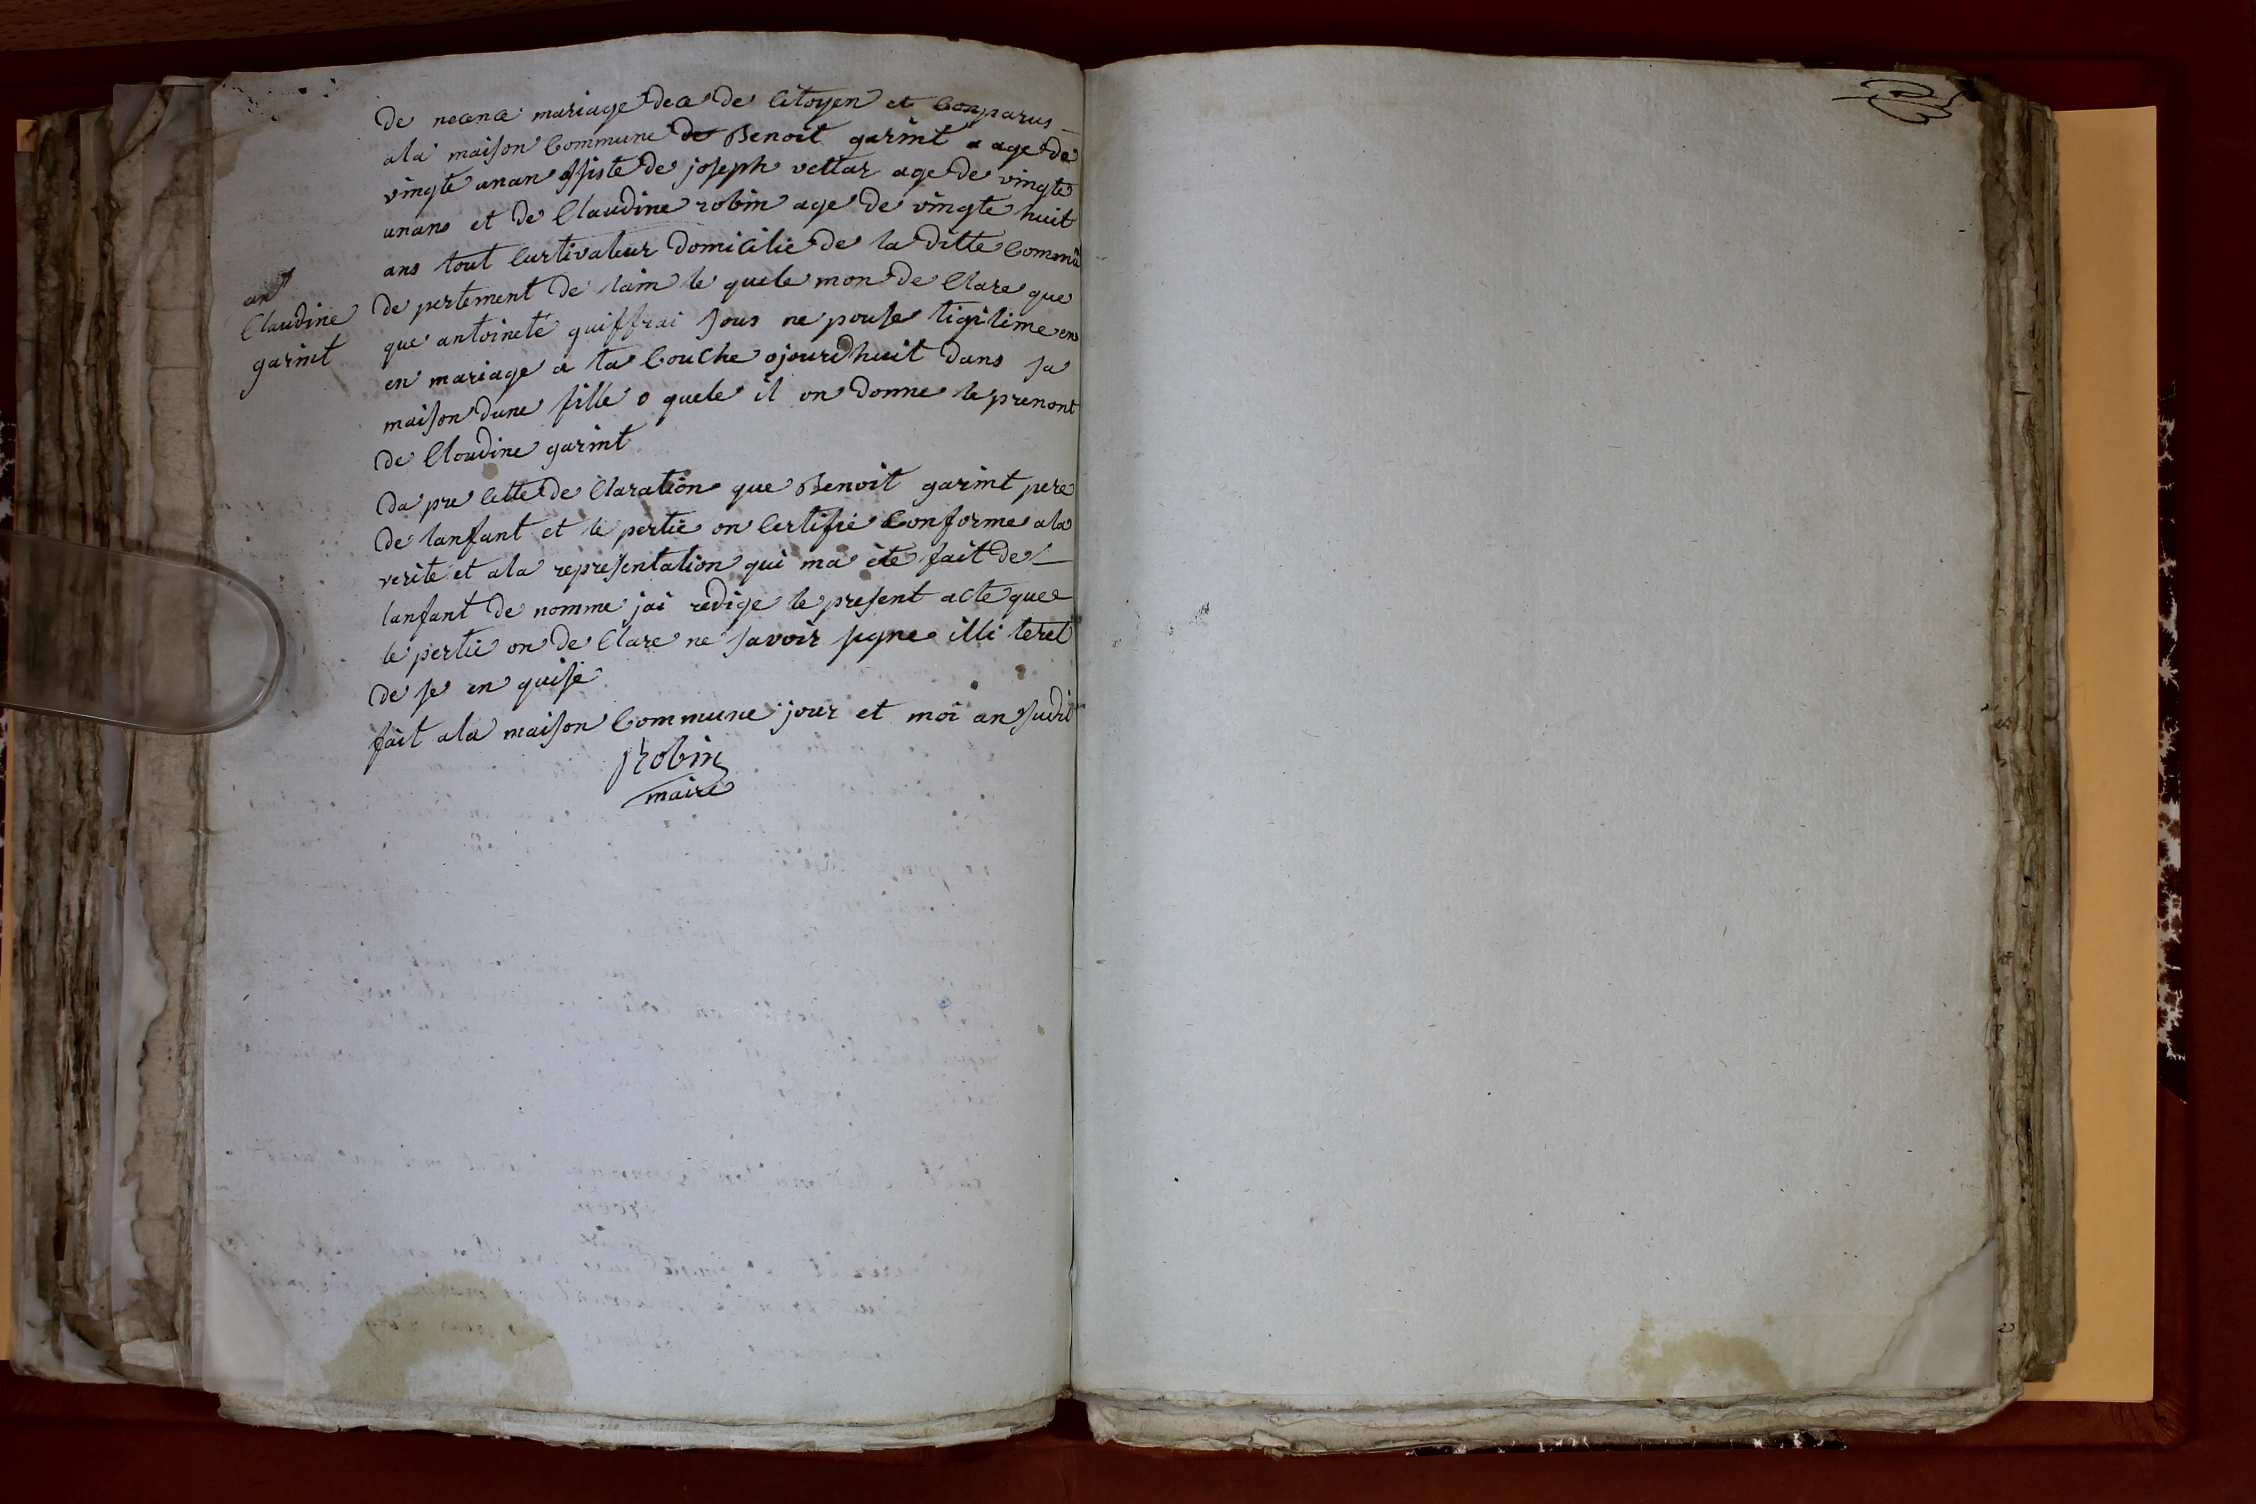 de necence mariage dece de Citoyen et Comparus
ala maison Commune de Benoit garint a age de
vingte unan assiste de joseph vettar age de vingte
unans et de Claudine robin age de vingte huit
ans tout Curtivateur domicilie de la ditte Commu
an
Claudine
garint
de pertement de lain le quele mon de Clare que
que antoinete guiffrai sous ne pouse ligitime en
en mariage a ta Couche ojourdhuit dans sa
maison dune fille o quele il on donne le prenont
de Cloudine garint
da pre Cette de Claration que Benoit garint pere
de lanfant et le pertie on Certifie Conforme ala
verite et ala representation qui ma ete fait de
lanfant de nomme jai redige le present acte que
le pertie on de Clare ne savoir signe illi teret
de se en quise
fait ala maison Commune jour et moi an sudit
robin
maire